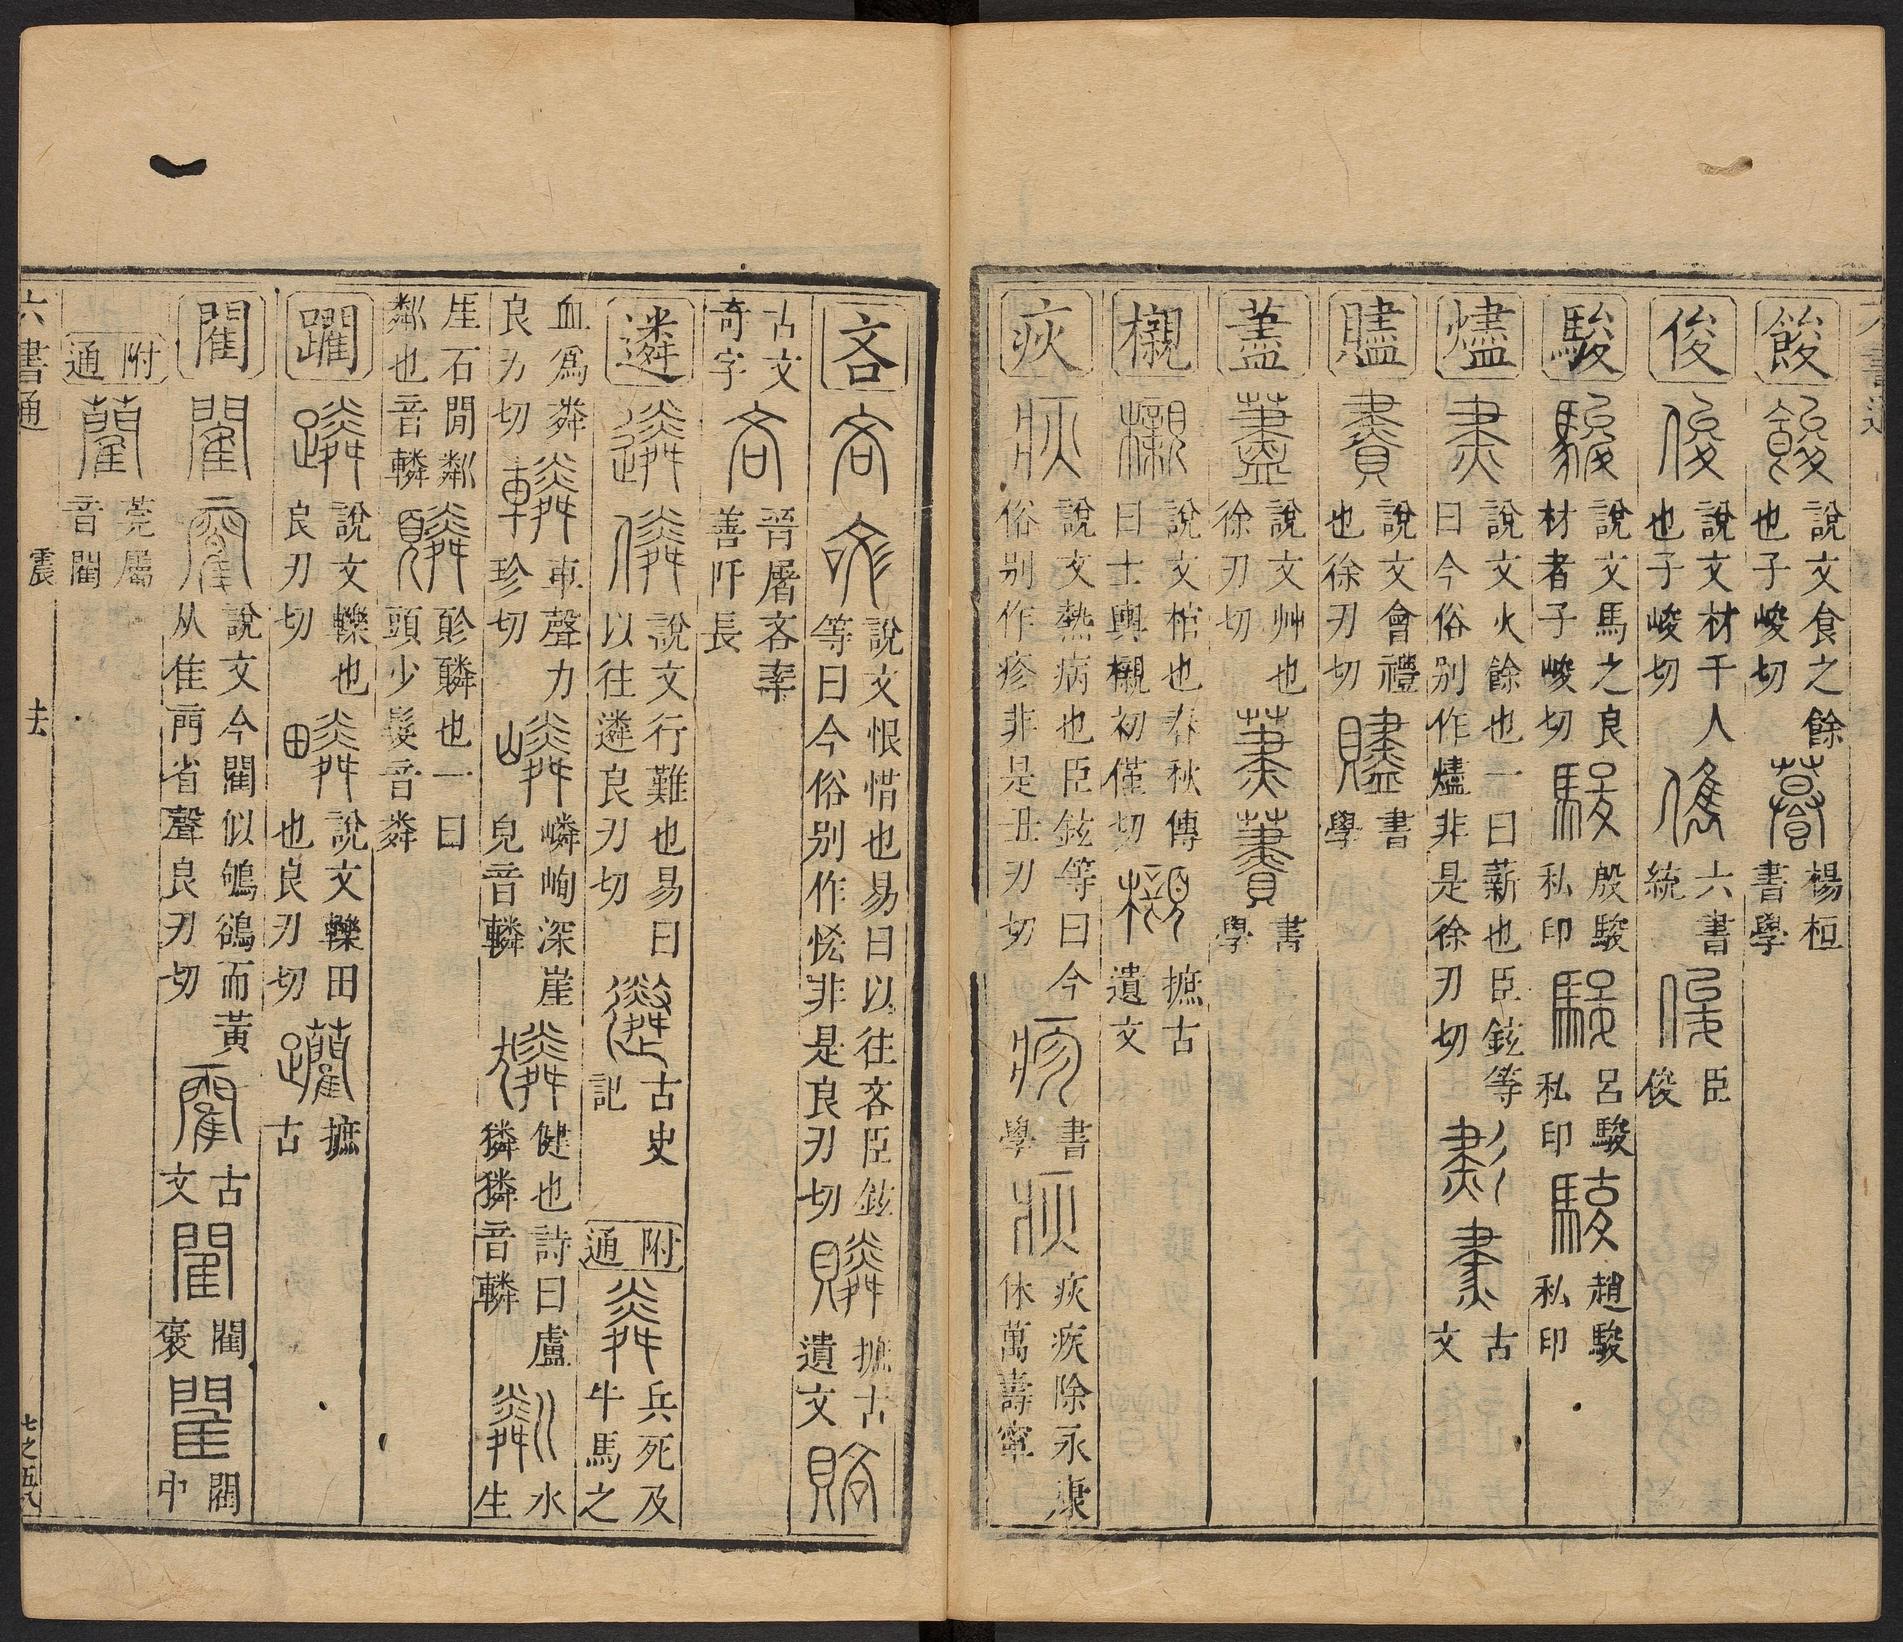 餕 說文食之餘也子峻切 楊桓書學
俊 說文材千人也子峻切 六書統 臣俊
駿 說文馬之良材者子峻切 殷駿私印 呂駿私印 趙駿私印
燼 說文火餘也一曰薪也臣鉉等曰今俗别作燼非是徐刃切 古文
贐 說文會禮也徐刃切 書學
藎 說文艸也徐刃切 書學
櫬 說文棺也春秋傳曰士輿櫬初僅切 摭古遺文
疢 說文熱病也臣鉉等曰今俗别作疹非是丑刃切 書學 疢疾除永康休萬壽寧
吝 說文恨惜也易曰以往吝臣鉉等曰今俗别作恡非是良刃切 摭古遺文
古文奇字 晉屠吝 善阡長
遴 說文行難也易曰以往遴良刃切 古史記 附通 兵死及牛馬之
血爲粦良刃切 車聲力珍切 嶙峋深崖皃音轔 健也詩曰盧獜獜音轔 水生
厓石閒粼粼也音轔 頭少髮音粦
躙 說文轢也良刃切 說文轢田也良刃切 摭古
閵 說文今閵似鴝鵒而黃从隹㒳省聲良刃切 古文 閵褒 閵中
附通 莞屬音閵
六書通
震
去
七之五八